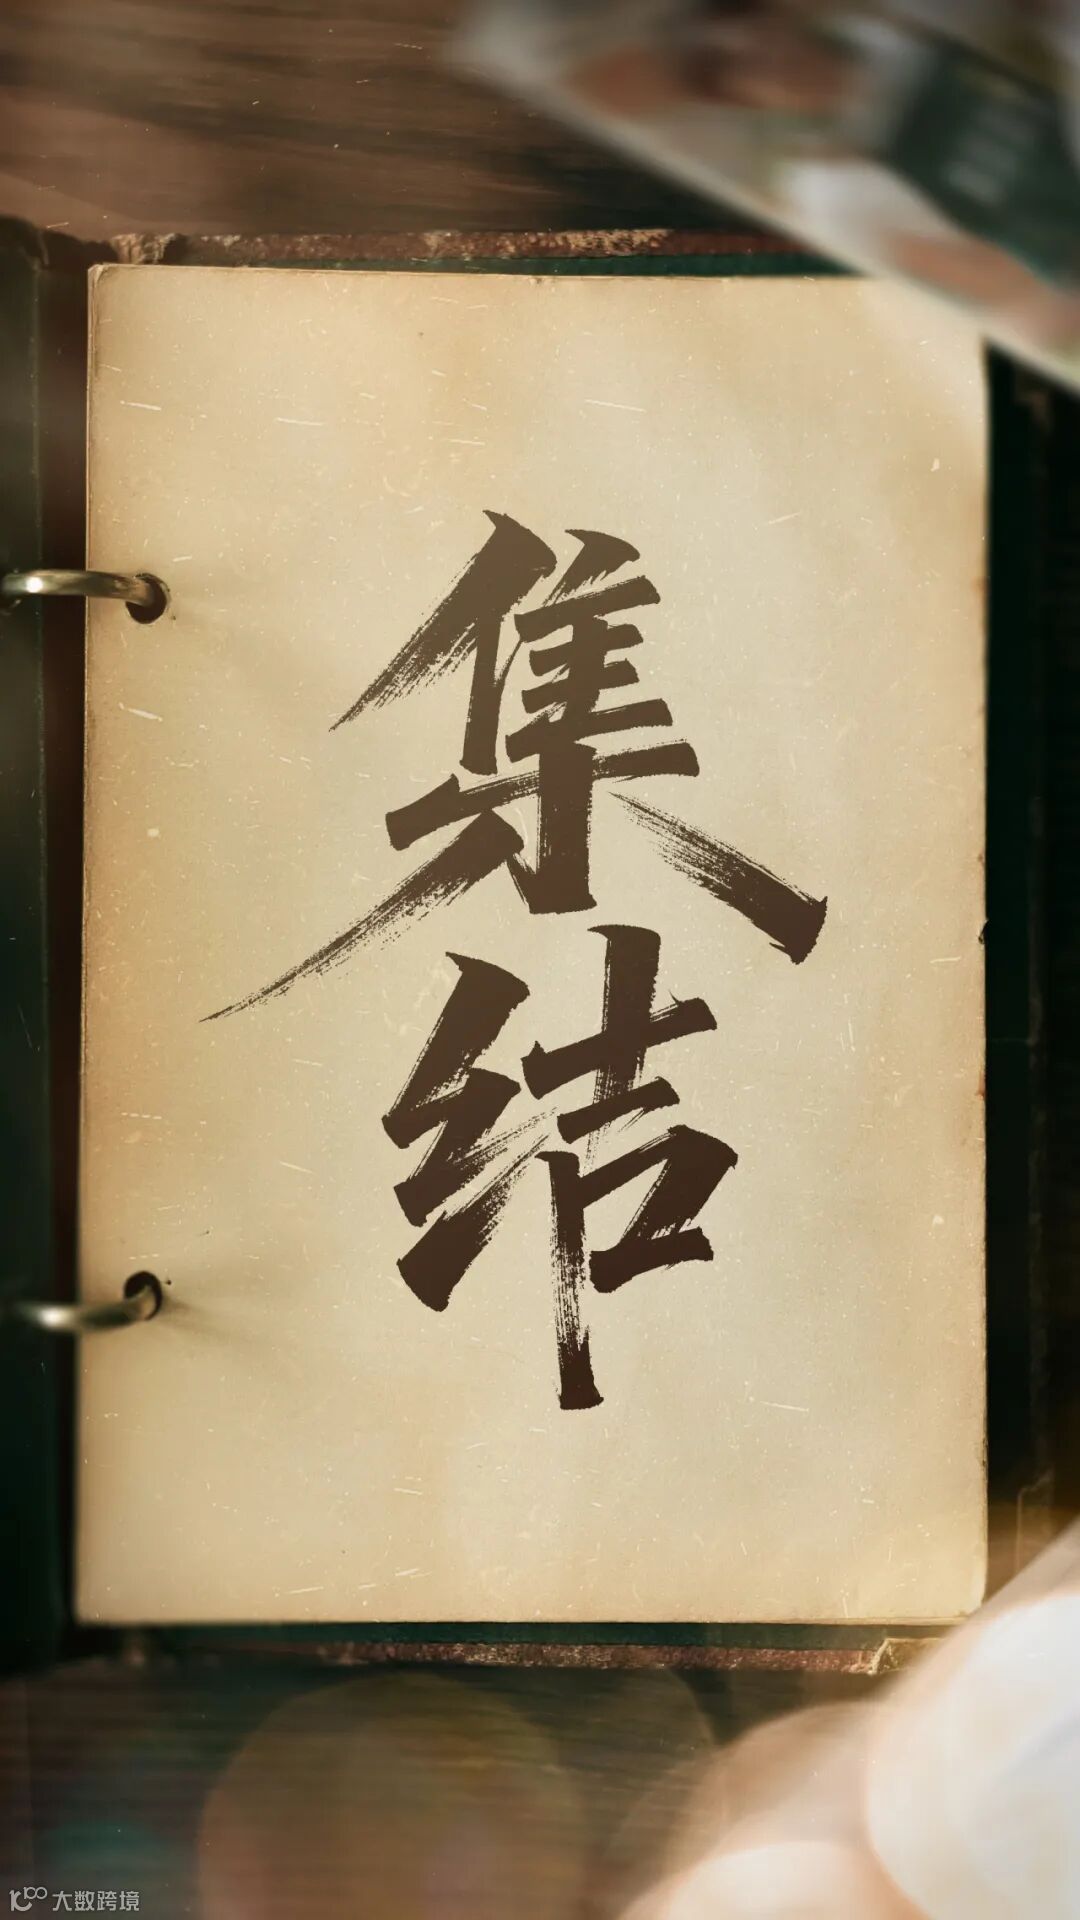 集
结
大数跨境